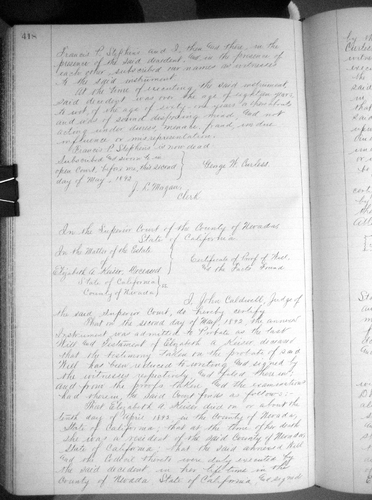 418
Francis P. Stephens and I, then and there, in the
presence of the said decedent, and in the presence of
each other, subscribed our names as witnesses
to the said instrument.
At the time of executing the said instrument,
said decedent was over the age of eighteen years
to wit, of the age of sixty-one years or thereabouts
and was of sound disposing mind, and not
acting under duress, menace, fraud, undue
influence or misrepresentation.
Francis P. Stephens is now dead
Subscribed and sworn to in
open Court, before me, this second
day of May, 1893
George W.
J. L. Morgan,
Clerk
In the Superior Court of the County of Nevada
State of California
In the Matter of the Estate
of
Elizabeth A. Keiser, Deceased
Certificate of Proof of Will
and the Facts Found
State of California
County of Nevada
I, John Caldwell, Judge of
the said Superior Court, do hereby certify
That on the second day of May 1893, the annexed
instrument was admitted to Probate as the last
Will and Testament of Elizabeth A. Keiser deceased
that the testimony taken on the probate of said
Will has been reduced to writing and signed by
the witnesses respectively and filed therein,
and from the proofs taken, and the examination
had therein, the said Court finds as follows:
That Elizabeth A. Keiser died on or about the
tenth day of April 1893 in the County of Nevada,
State of California; that at the time of her death
she was a resident of the said County of Nevada
State of California; that the said annexed Will
was duly executed by
the said decedent in her lifetime in the
County of Nevada State of California, and signed